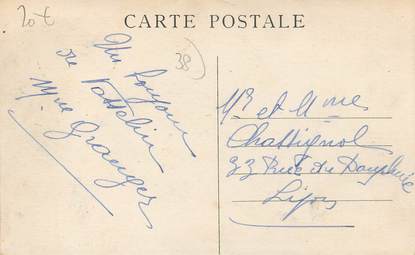 20 €
CARTE POSTALE
38
Un bonjour
de
Mme Granger
Mr et Mme
Chassignol
33 Rue du Dauphiné
Lyon